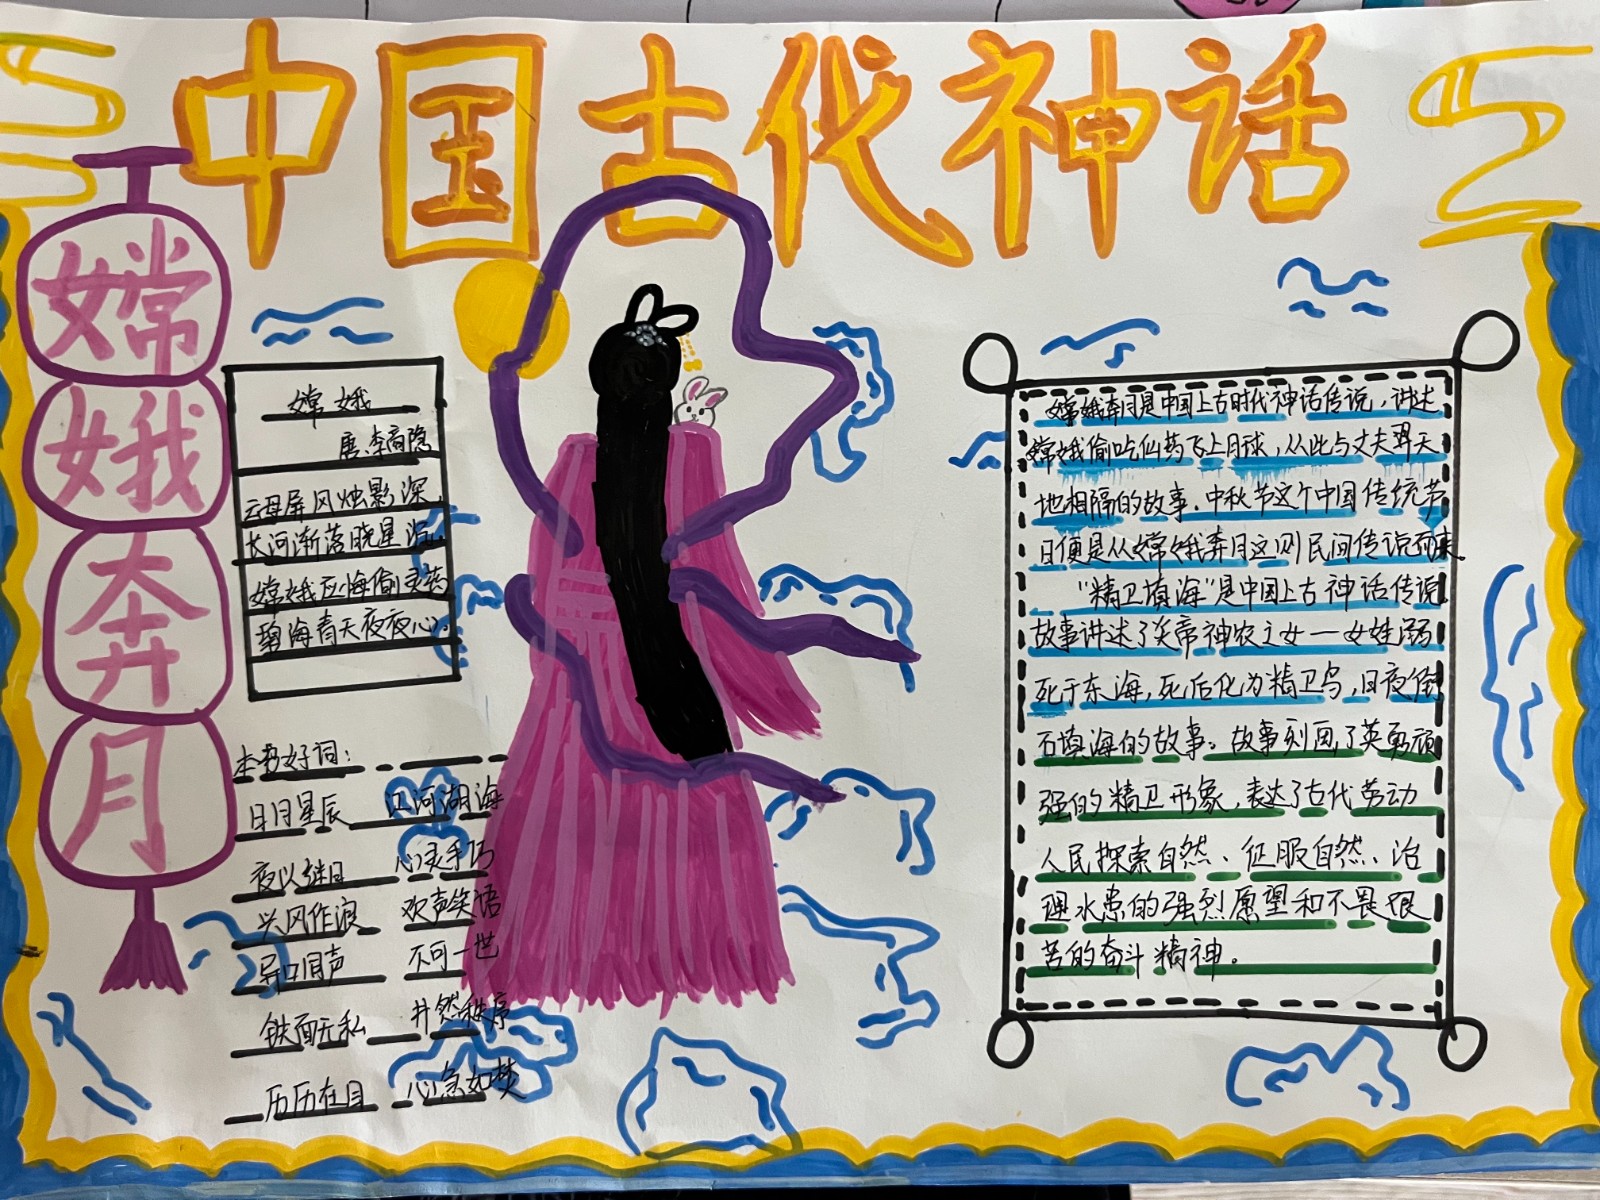 中国古代神话
嫦娥奔月
嫦娥
唐:李商隐
云母屏风烛影深,
长河渐落晓星沉。
嫦娥应悔偷灵药
碧海青天夜夜心。
本势好词:
日月星辰 江河湖海
夜以继日 心灵手巧
兴风作浪 欢声笑语
异口同声 不可一世
铁面无私 井然秩序
历历在目 心急如焚
嫦娥奔月是中国上古时代神话传说,讲述
嫦娥偷吃仙药飞上月球,从此与丈夫羿天
地相隔的故事。中秋节这个中国传统节
日便是从嫦娥奔月这则民间传说而来
"精卫填海"是中国上古神话传说
故事讲述了炎帝神农之女一女娃溺
死于东海,死后化为精卫鸟,日夜衔
石填海的故事。故事刻画了英勇顽
强的精卫形象,表达了古代劳动
人民探索自然、征服自然、治
理水患的强烈愿望和不畏艰
苦的奋斗精神。